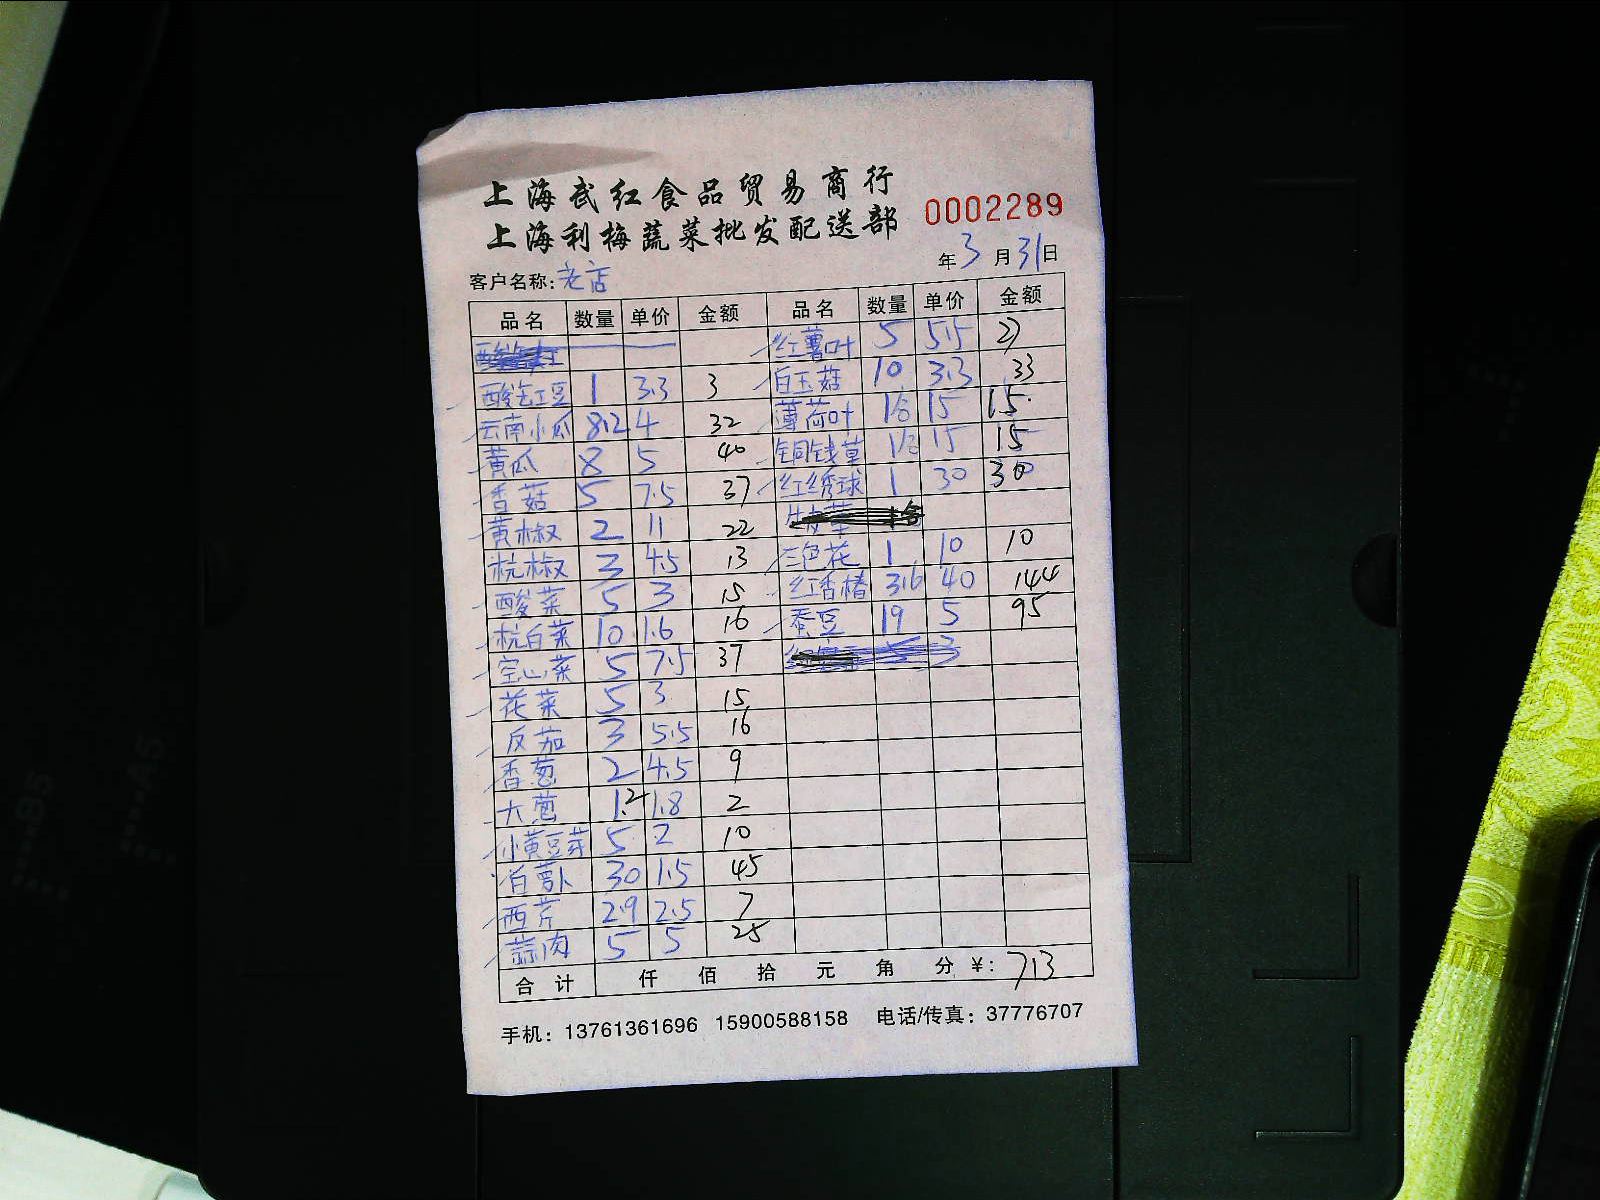 上海武红食品贸易商行
上海利梅蔬菜批发配送部
0002289
年3月31日
客户名称:老店
品名 数量 单价 金额 品名 数量 单价 金额
红薯叶 5 5.5 27
酸豇豆 1 3.3 3 白玉菇 10 3.3 33
云南小瓜 8.2 4 32 薄荷叶 1 15 15
黄瓜 8 5 40 铜钱草 1 15 15
香菇 5 7.5 37 红绣球 1 30 30
黄椒 2 11 22
杭椒 3 4.5 13 三色花 1 10 10
酸菜 5 3 15 红香椿 3.6 40 144
杭白菜 10 1.6 16 蚕豆 19 5 95
空心菜 5 7.5 37
花菜 5 3 15
反茄 3 5.5 16
香葱 2 4.5 9
大葱 1.2 1.8 2
小黄豆芽 5 2 10
白萝卜 30 1.5 45
西芹 2.9 2.5 7
蒜肉 5 5 25
合计 仟 佰 拾 元 角 分 ¥: 713
手机: 13761361696 15900588158 电话/传真: 37776707